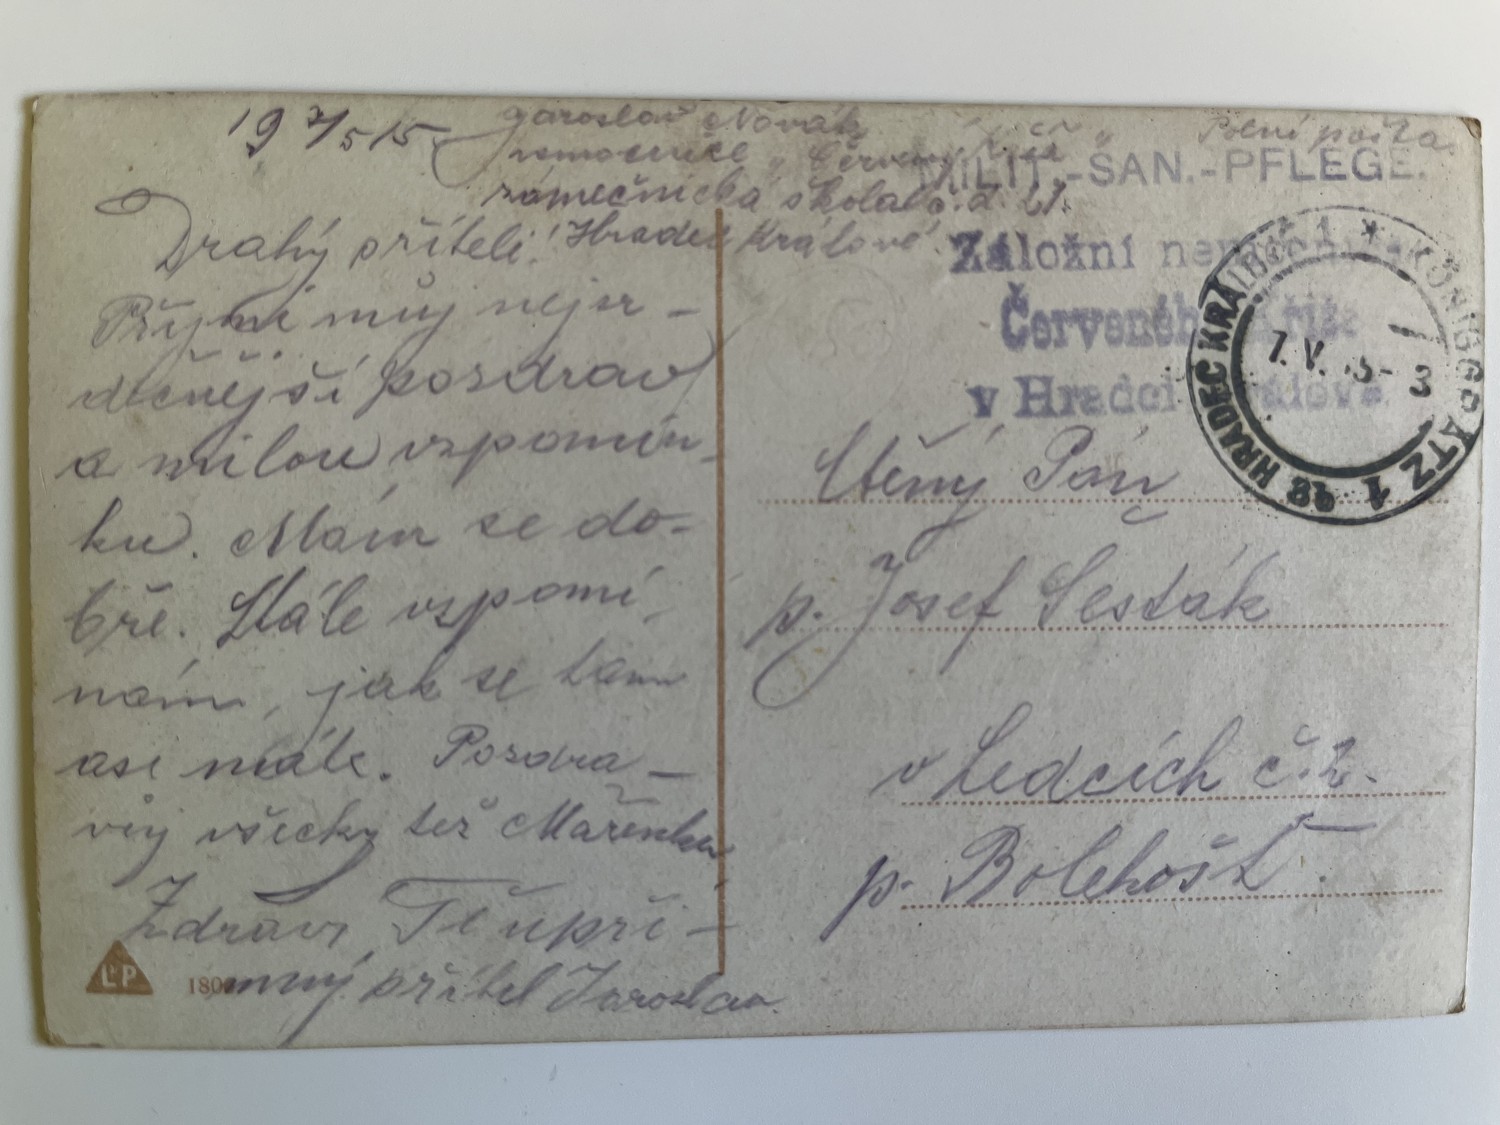 19 7/5 15
Jaroslav Novák
nemocnice „Červený kříž" Polní pošta
zámečnická škola č. d. 21.
Hradec Králové.
MILIT.-SAN.-PFLEGE.
Záložní nemocnice
Červeného kříže
v Hradci Králové
HRADEC KRÁLOVÉ 1 * KÖNIGGRÄTZ 1
7. V. 15 - 3
Drahý příteli!
Přijmi můj nejsr-
dečnější pozdrav
a milou vzpomín-
ku. Mám se do-
bře. Stále vzpomí-
nám, jak se tam
asi máte. Pozdra-
vuj všecky též Mařenku
Zdraví Tě upří-
mný přítel Jaroslav.
Ctěný Pán
p. Josef Šesták
v Ledcích č. 2.
p. Bolehošť.
L&P 180